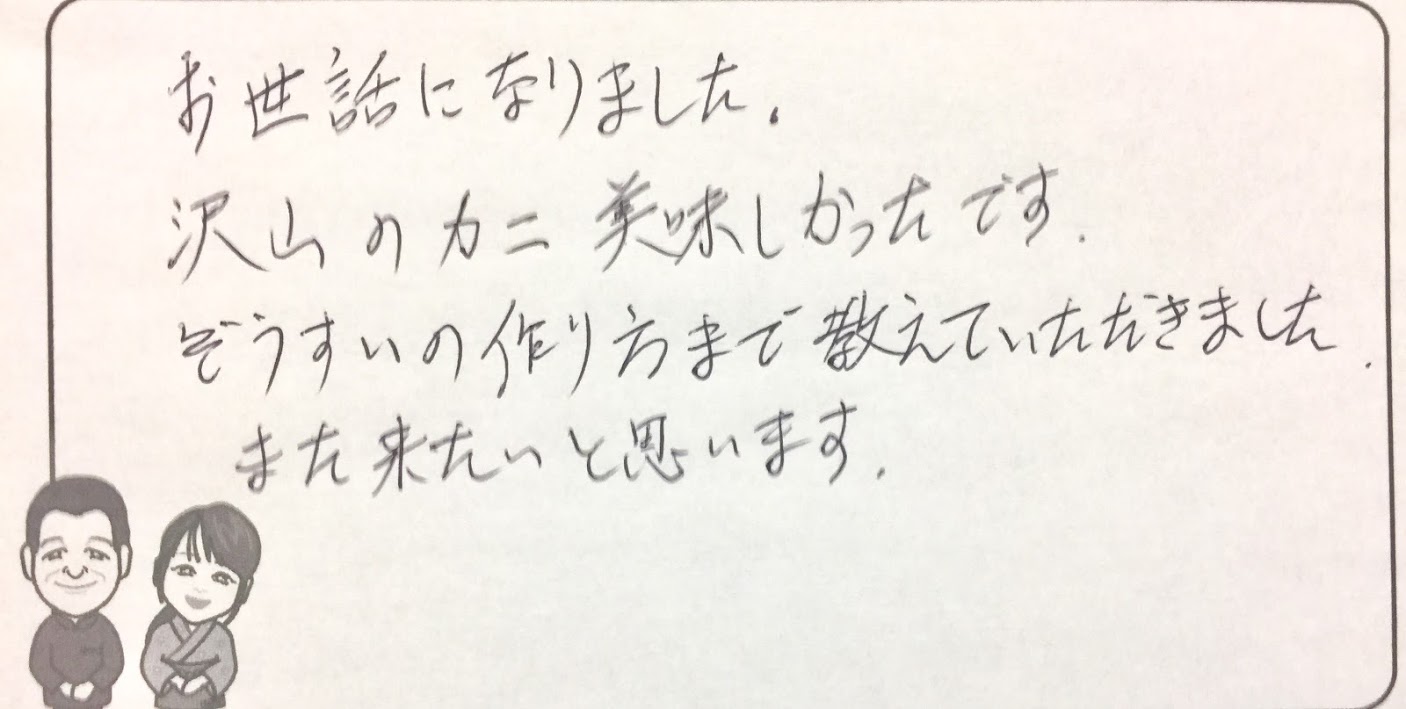 お世話になりました.
沢山のカニ美味しかったです.
ぞうすいの作り方まで教えていただきました.
また来たいと思います.